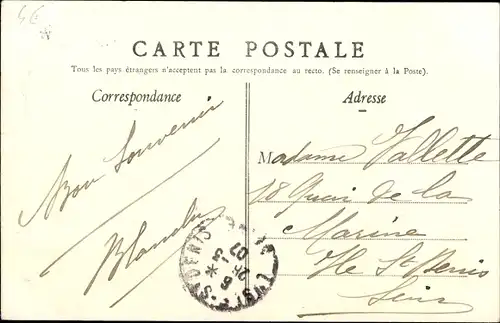 4€
CARTE POSTALE
Tous les pays étrangers n'acceptent pas la correspondance au recto. (Se renseigner à la Poste).
Correspondance
Adresse
Bon Souvenir
Blanche
Madame Vallette
18 Quai de la
Marine
Ile St Denis
Seine